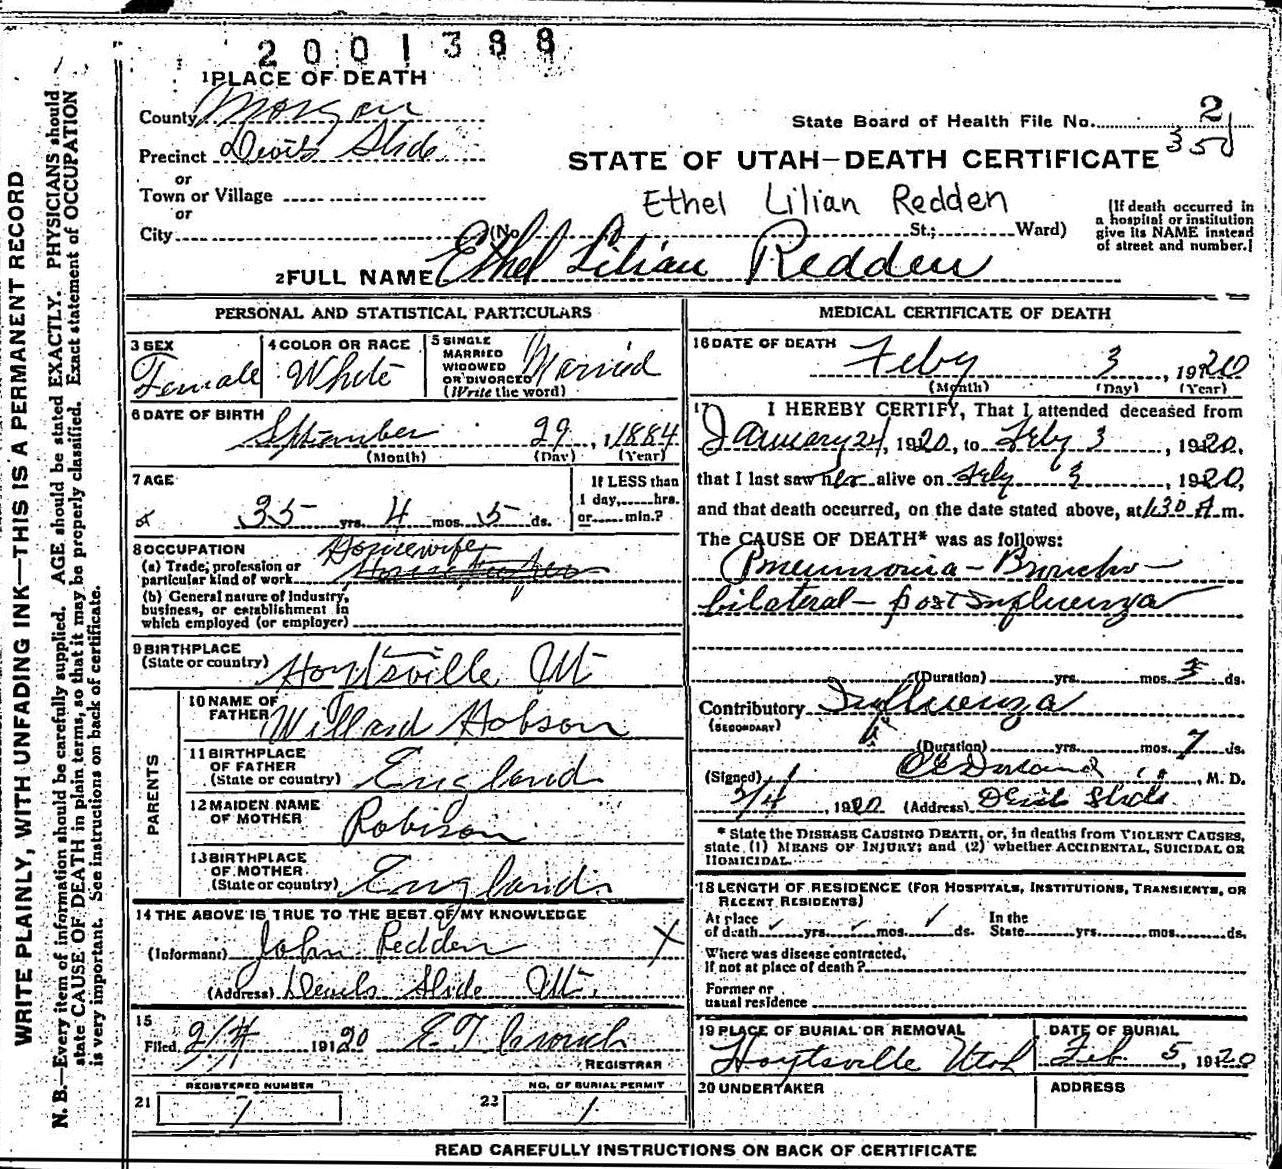 2001388
1 PLACE OF DEATH
County Morgan
Precinct Devils Slide
or
Town or Village
or
City
State Board of Health File No. 2
350
STATE OF UTAH—DEATH CERTIFICATE
Ethel Lilian Redden
(No. St.; Ward)
(If death occurred in
a hospital or institution
give its NAME instead
of street and number.]
2 FULL NAME Ethel Lilian Redden
PERSONAL AND STATISTICAL PARTICULARS
3 SEX
Female
4 COLOR OR RACE
White
5 SINGLE
MARRIED
WIDOWED
OR DIVORCED
(Write the word)
Married
6 DATE OF BIRTH
September 29, 1884
(Month) (Day) (Year)
7 AGE
35 yrs. 4 mos. 5 ds.
If LESS than
1 day, hrs.
or min.?
8 OCCUPATION
(a) Trade, profession or
particular kind of work
Housewife
(b) General nature of industry,
business, or establishment in
which employed (or employer)
9 BIRTHPLACE
(State or country) Hoytsville Ut
PARENTS
10 NAME OF
FATHER Willard Hobson
11 BIRTHPLACE
OF FATHER
(State or country) England
12 MAIDEN NAME
OF MOTHER Robison
13 BIRTHPLACE
OF MOTHER
(State or country) England
14 THE ABOVE IS TRUE TO THE BEST OF MY KNOWLEDGE
(Informant) John Redden X
(Address) Devils Slide Ut.
15
Filed 2/4 1920 E T Crouch
REGISTRAR
REGISTERED NUMBER
21 7
NO. OF BURIAL PERMIT
22 1
MEDICAL CERTIFICATE OF DEATH
16 DATE OF DEATH
Feby 3, 1920
(Month) (Day) (Year)
17 I HEREBY CERTIFY, That I attended deceased from
January 24, 1920, to Feby 3, 1920,
that I last saw her alive on Feby 3, 1920,
and that death occurred, on the date stated above, at 1:30 A m.
The CAUSE OF DEATH* was as follows:
Pneumonia - Broncho -
bilateral - post Influenza
(Duration) yrs. mos. 3 ds.
Contributory Influenza
(SECONDARY)
(Duration) yrs. mos. 7 ds.
(Signed) , M. D.
2/4, 1920 (Address) Devils Slide
* State the DISEASE CAUSING DEATH, or, in deaths from VIOLENT CAUSES,
state (1) MEANS OF INJURY; and (2) whether ACCIDENTAL, SUICIDAL OR
HOMICIDAL.
18 LENGTH OF RESIDENCE (FOR HOSPITALS, INSTITUTIONS, TRANSIENTS, OR
RECENT RESIDENTS)
At place In the
of death yrs. mos. ds. State yrs. mos. ds.
Where was disease contracted,
If not at place of death?
Former or
usual residence
19 PLACE OF BURIAL OR REMOVAL
Hoytsville Utah
DATE OF BURIAL
Feb 5, 1920
20 UNDERTAKER
ADDRESS
READ CAREFULLY INSTRUCTIONS ON BACK OF CERTIFICATE
WRITE PLAINLY, WITH UNFADING INK—THIS IS A PERMANENT RECORD
N. B.—Every item of information should be carefully supplied. AGE should be stated EXACTLY. PHYSICIANS should
state CAUSE OF DEATH in plain terms, so that it may be properly classified. Exact statement of OCCUPATION
is very important. See instructions on back of certificate.